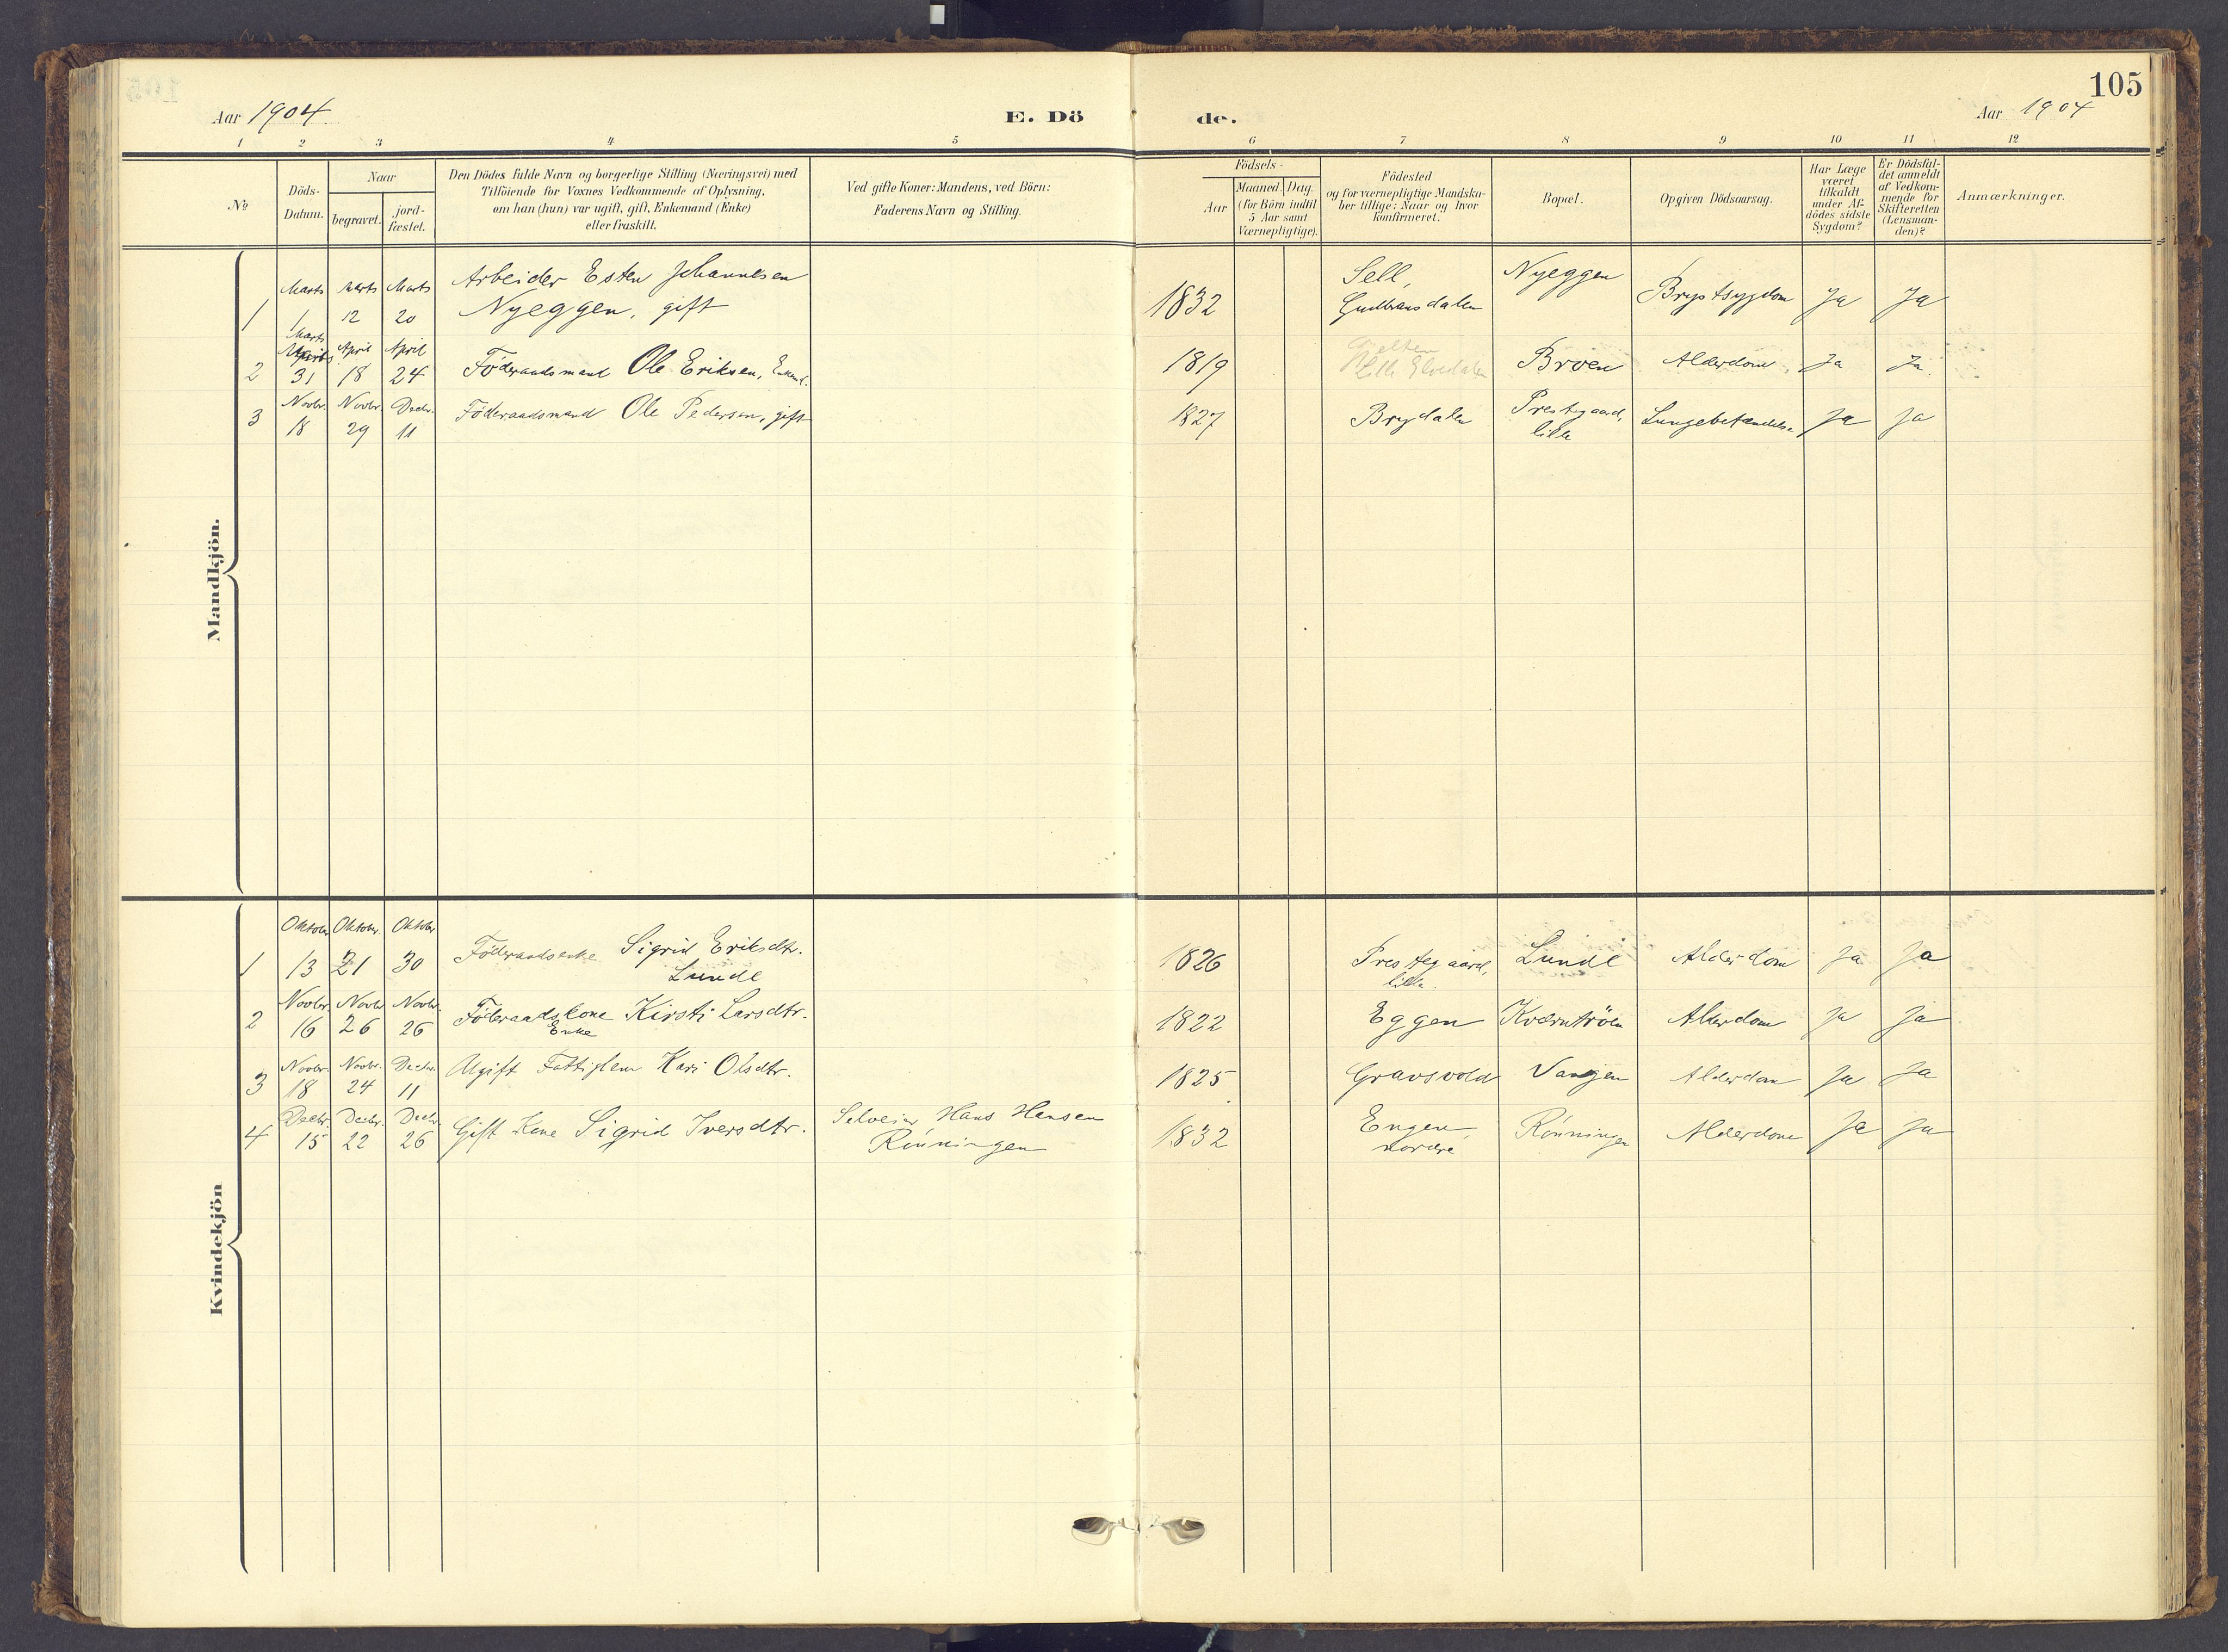 105
Aar 1904
E. Dö
de.
Aar 1904
1 2 3 4 5 6 7 8 9 10 11 12
No
Döds-
Datum.
Naar
begravet.
jord-
fæstet.
Den Dödes fulde Navn og borgerlige Stilling (Næringsvei) med
Tilföiende for Voxnes Vedkommende af Oplysning,
om han (hun) var ugift, gift, Enkemand (Enke)
eller fraskilt.
Ved gifte Koner: Mandens, ved Börn:
Faderens Navn og Stilling.
Födsels-
Aar
Maaned. Dag.
(for Börn indtil
5 Aar samt
Værnepligtige).
Födested
og for værnepligtige Mandska-
ber tillige: Naar og hvor
konfirmeret.
Bopæl.
Opgiven Dödsaarsag.
Har Læge
været
tilkaldt
under Af-
dödes sidste
Sygdom?
Er Dödsfal-
det anmeldt
af Vedkom-
mende for
Skifteretten
(Lensman-
den)?
Anmærkninger.
Mandkjön.
Marts Marts Marts Arbeider Esten Johannesen Sell, Nyeggen
1 1 12 20 Nyeggen, gift 1832 Gudbransdalen Brystsygdom Ja Ja
Marts
April April
2 31 18 24 Föderaadsmand Ole Eriksen, Enkem. 1819 Lille Elvedalen Broen Alderdom Ja Ja
Novbr. Novbr. Decbr.
3 18 29 11 Föderaadsmand Ole Pedersen, gift 1827 Brydalen Prestegaard, Lungebetændelse Ja Ja
lille
Kvindekjön
Oktober Oktober. Oktober
1 13 21 30 Föderaadsenke Sigrid Eriksdtr. 1826 Prestegaard, Lunde Alderdom Ja Ja
Lunde lille
Novbr. Novbr. Novbr.
2 16 26 26 Föderaadskone Kirsti Larsdtr. 1822 Eggen Kværntröen Alderdom Ja Ja
Enke
Novbr. Novbr. Decbr.
3 18 24 11 Ugift Fattiglem Kari Olsdtr. 1825 Gravsvold Vangen Alderdom Ja Ja
Decbr. Decbr. Decbr. Selveier Hans Hansen
4 15 22 26 Gift Kone Sigrid Iversdtr. Rönningen 1832 Engen Rönningen Alderdom Ja Ja
nordre